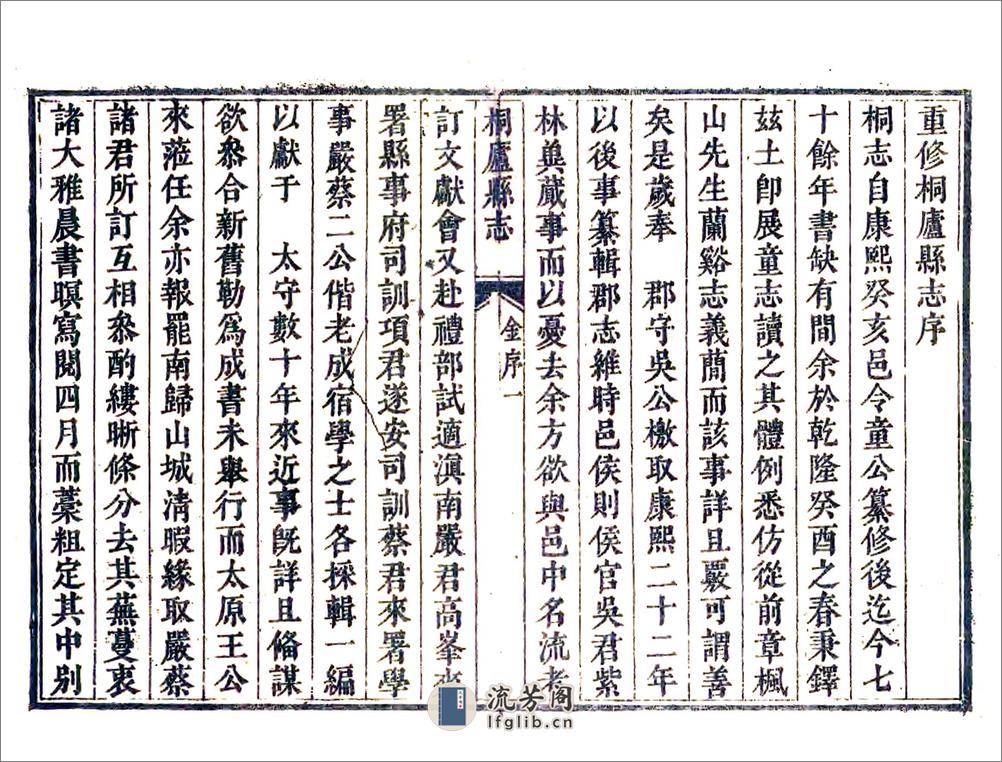 重修桐廬縣志序
桐志自康熙癸亥邑令童公纂修後迄今七
十餘年書缺有間余於乾隆癸酉之春秉鐸
兹土卽展童志讀之其體例悉仿從前章楓
山先生蘭谿志義蕳而該事詳且覈可謂善
矣是歲奉　郡守吳公檄取康熙二十二年
以後事纂輯郡志維時邑侯則侯官吳君紫
林䔬蕆事而以憂去余方欲與邑中名流考
桐廬縣志
金序
一
訂文獻會又赴禮部試適滇南嚴君高峯來
署縣事府司訓項君遂安司訓蔡君來署學
事嚴蔡二公偕老成宿學之士各採輯一編
以獻于　太守數十年來近事旣詳且備謀
欲叅合新舊勒爲成書未舉行而太原王公
來蒞任余亦報罷南歸山城清暇緣取嚴蔡
諸君所訂互相叅酌縷晰條分去其蕪蔓衷
諸大雅晨書暝寫閱四月而藳粗定其中別
流芳阁
lfglib.cn